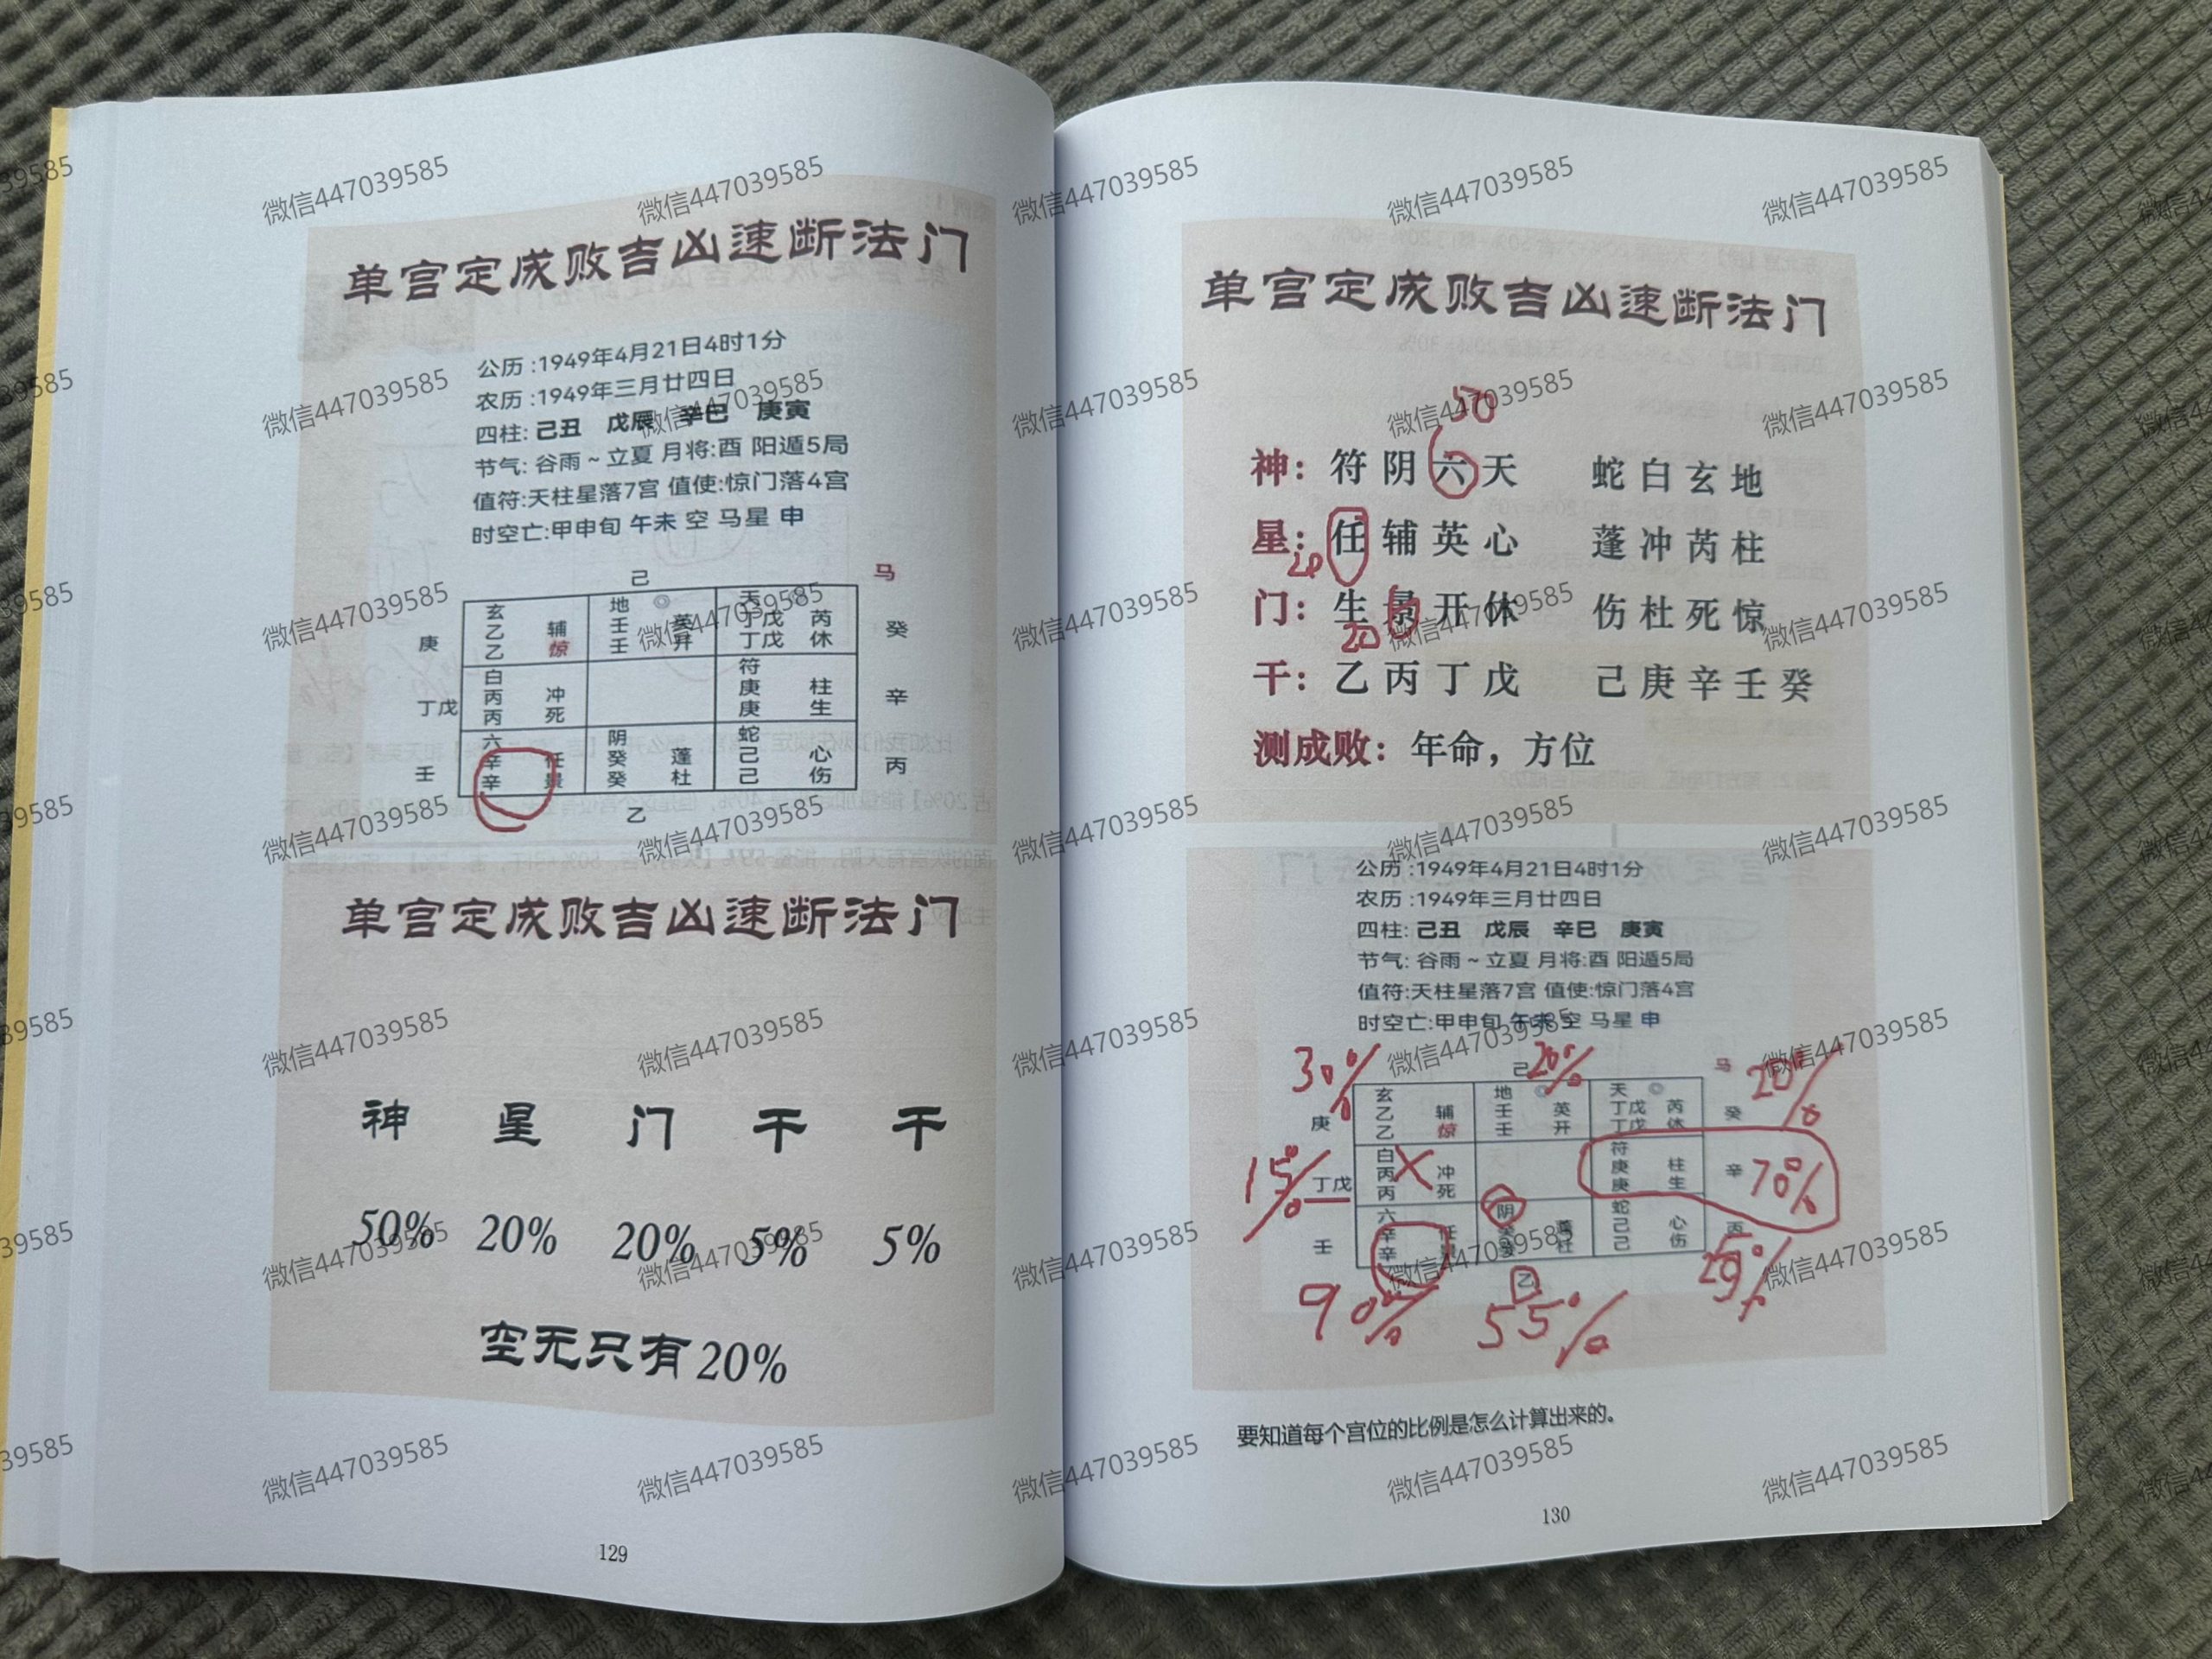 单宫定成败吉凶速断法门
公历:1949年4月21日4时1分
农历:1949年三月廿四日
四柱: 己丑 戊辰 辛巳 庚寅
节气: 谷雨~立夏 月将:酉 阳遁5局
值符:天柱星落7宫 值使:惊门落4宫
时空亡:甲申旬 午未 空 马星 申
己 马
玄 地 ◎ 天
庚 乙 辅 壬 英 丁戊 芮 癸
乙 惊 壬 开 丁戊 休
白 符
丙 冲 庚 柱 辛
丁戊 丙 死 庚 生
六 阴 蛇
辛 任 癸 蓬 己 心 丙
壬 辛 景 癸 杜 己 伤
乙
单宫定成败吉凶速断法门
神 星 门 干 干
50% 20% 20% 5% 5%
空无只有20%
129
单宫定成败吉凶速断法门
50
神: 符 阴 六 天 蛇 白 玄 地
星: 任 辅 英 心 蓬 冲 芮 柱
20
门: 生 景 开 休 伤 杜 死 惊
20
干: 乙 丙 丁 戊 己 庚 辛 壬 癸
测成败: 年命, 方位
公历:1949年4月21日4时1分
农历:1949年三月廿四日
四柱: 己丑 戊辰 辛巳 庚寅
节气: 谷雨~立夏 月将:酉 阳遁5局
值符:天柱星落7宫 值使:惊门落4宫
时空亡:甲申旬 午未 空 马星 申
30% 己 20% 马 20%
玄 地 ◎ 天 ◎
庚 乙 辅 壬 英 丁戊 芮 癸
乙 惊 壬 开 丁戊 休
15% 白 符
丁戊 丙 冲 庚 柱 辛 70%
丙 死 庚 生
六 阴 蛇
壬 辛 任 癸 蓬 己 心 丙
辛 景 癸 杜 己 伤
90% 乙 55% 20%
要知道每个宫位的比例是怎么计算出来的。
130
微信447039585